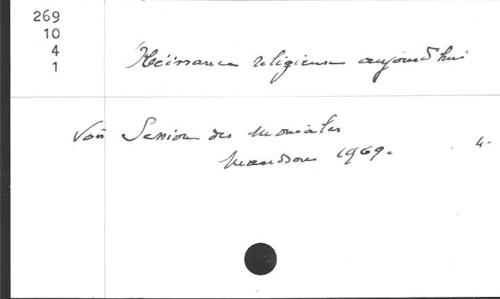 269
10
4
1
Obéissance religieuse aujourd'hui
Voir Session des Moniales
1969. 4.